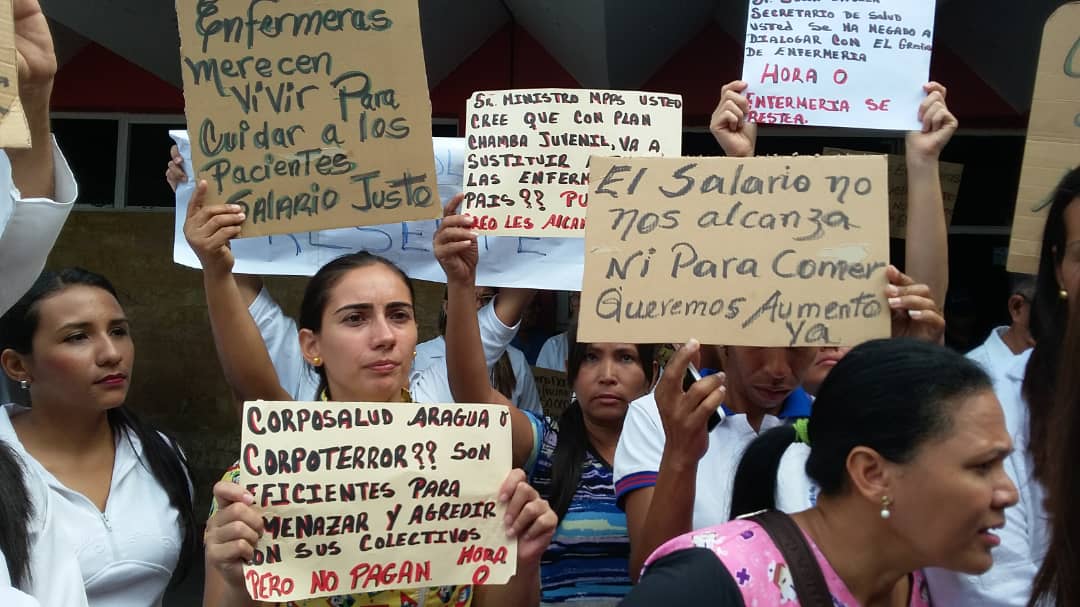 Enfermeras
merecen
vivir Para
Cuidar a los
Pacientes
Salario Justo
Sr. Ministro MPPS usted
cree que con plan
chamba juvenil, va a
sustituir a
las enferm
pais??
creo les alcan
Secretario de Salud
usted se ha negado a
dialogar con el gremio
de enfermeria
Hora 0
Enfermeria se
restea.
El Salario no
nos alcanza
Ni Para Comer
Queremos Aumento
ya
Corposalud Aragua o
Corpoterror?? Son
eficientes para
amenazar y agredir
con sus colectivos
Pero no pagan. Hora
0